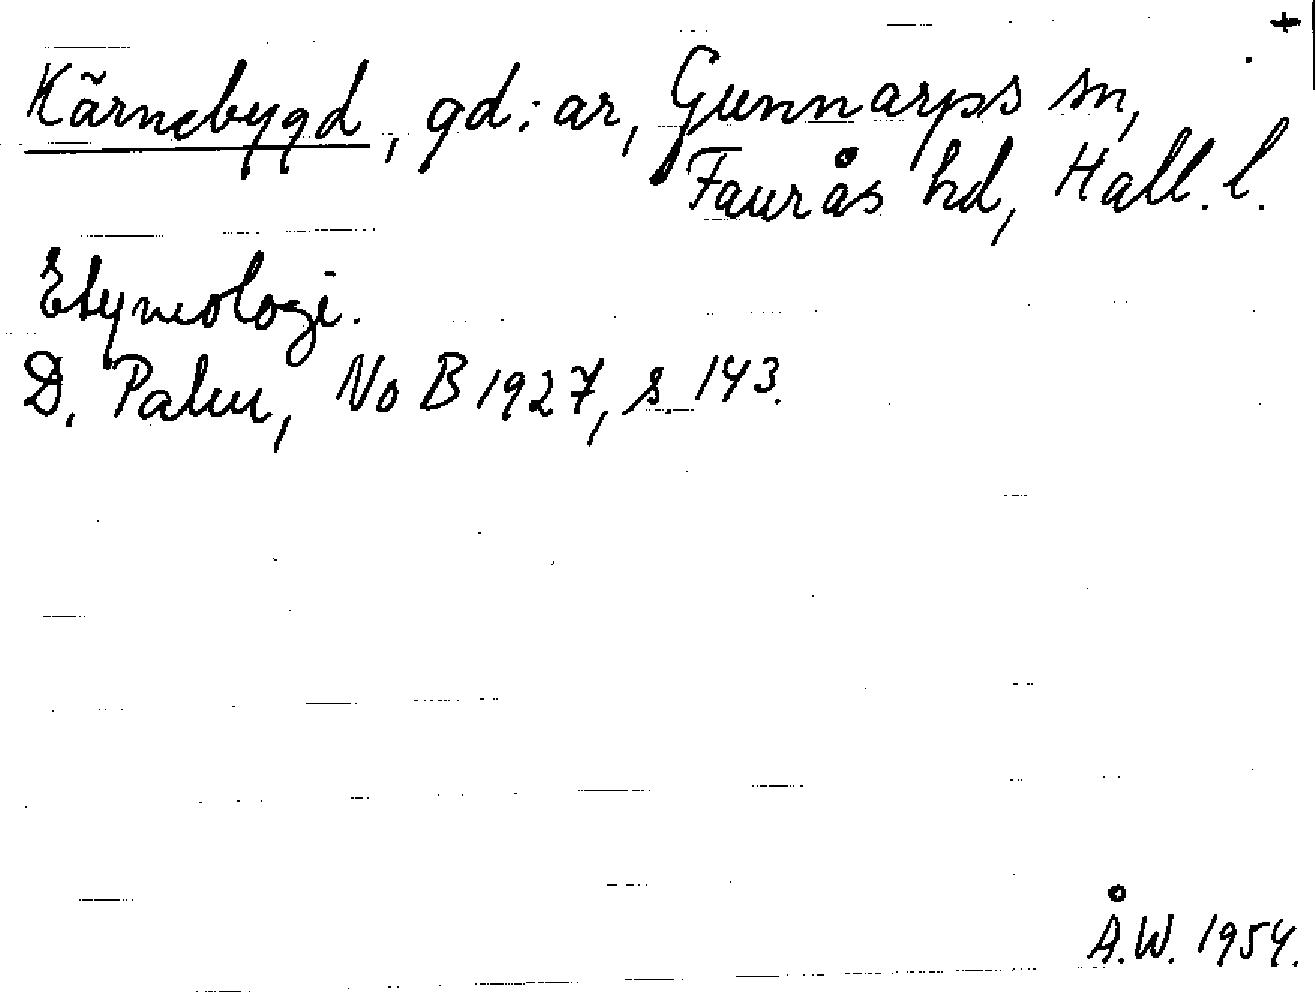 +
Kärnebygd, gd:ar, Gunnarps sn,
Faurås hd, Hall. l.
Etymologi.
D. Palm, NoB 1927, s. 143.
Å.W. 1954.